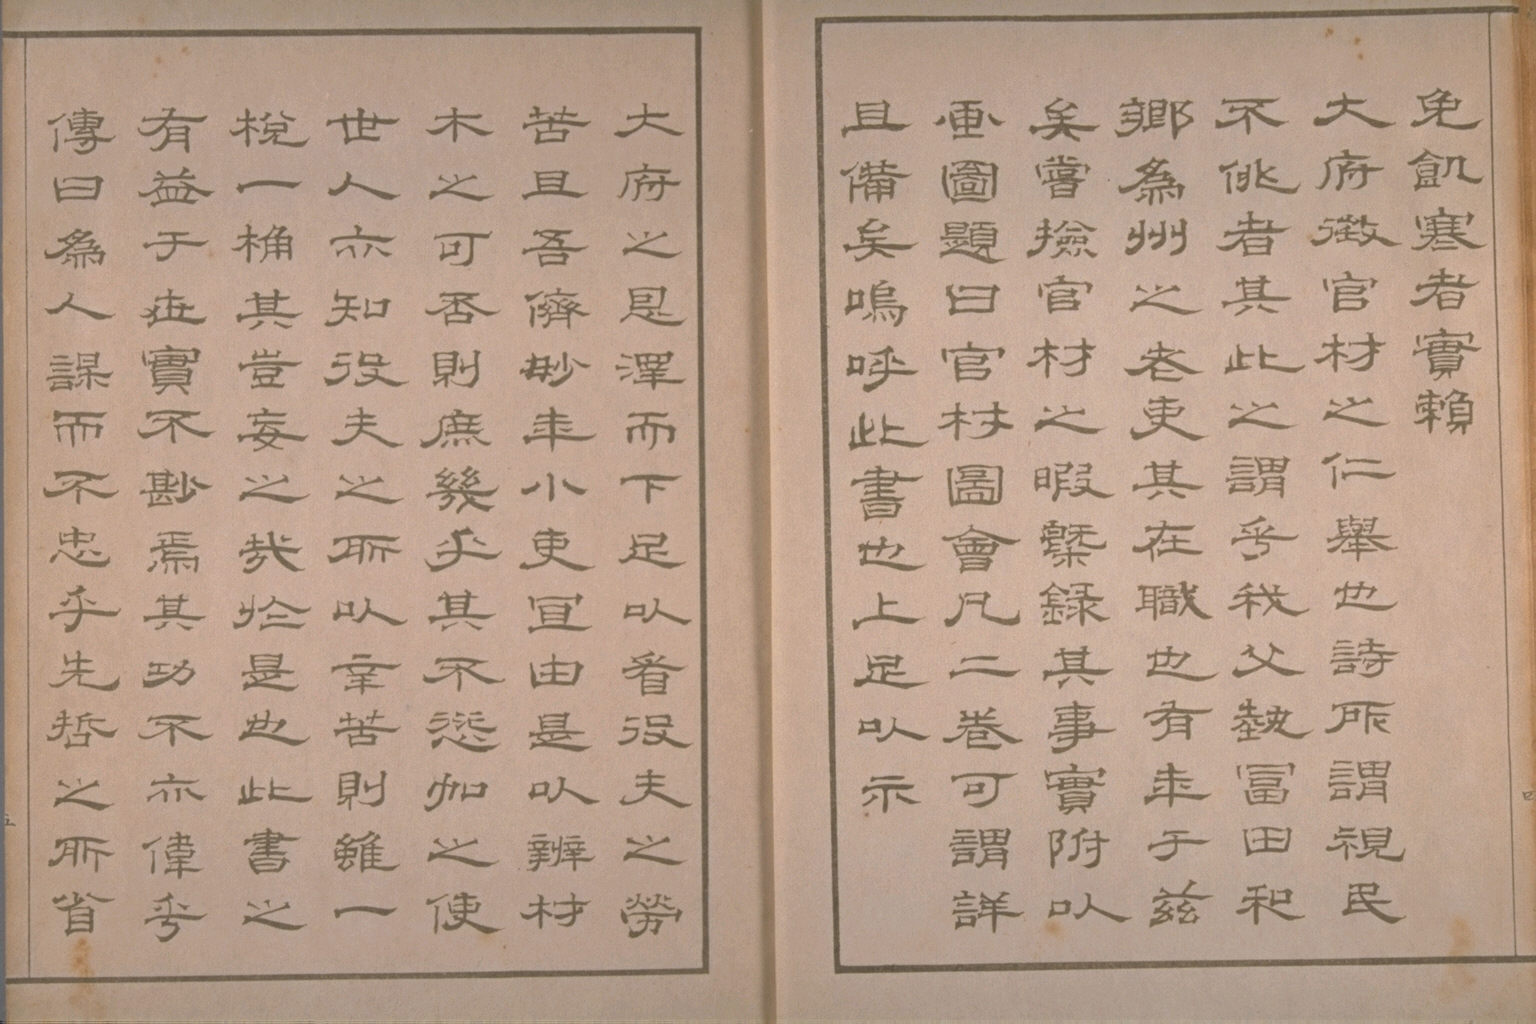 免飢寒者實賴
大府徵官材之仁舉也詩所謂視民
不佻者其此之謂乎我父執冨田和
鄉為州之老吏其在職也有年于茲
矣嘗撿官材之暇槩錄其事實附以
画圖題曰官材圖會凡二卷可謂詳
且備矣嗚呼此書也上足以示
大府之恩澤而下足以省役夫之勞
苦且吾儕眇年小吏宜由是以辨材
木之可否則庶幾乎其不愆加之使
世人亦知役夫之所以辛苦則雖一
梲一桷其豈妄之哉於是也此書之
有益于世實不尠焉其功不亦偉乎
傳曰為人謀而不忠乎先哲之所省
四
五